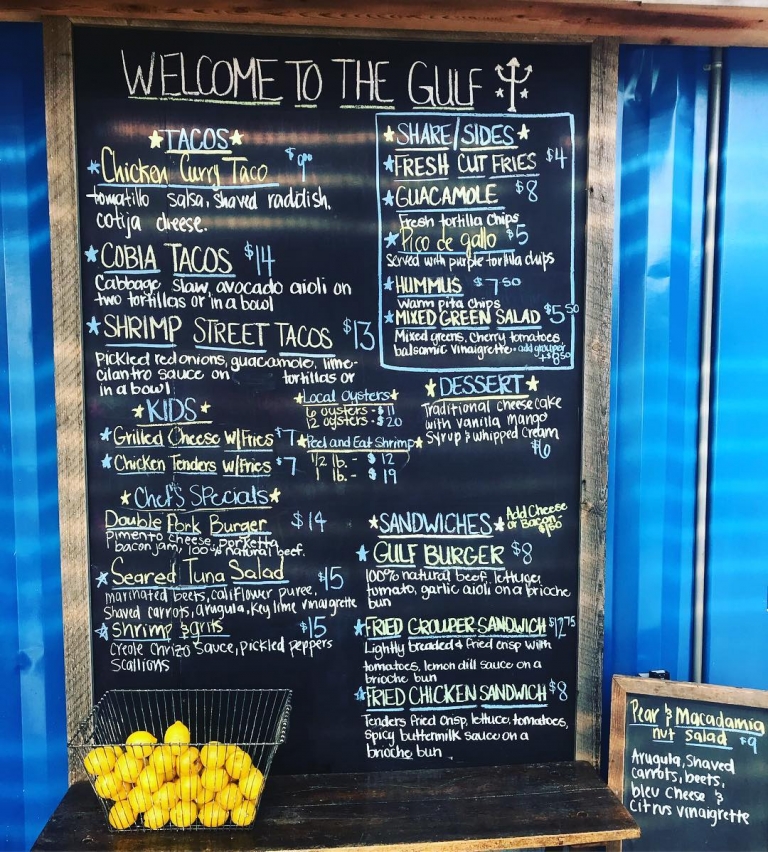 WELCOME TO THE GULF
TACOS
Chicken Curry Taco $9.00
tomatillo salsa, shaved raddish,
cotija cheese.
COBIA TACOS $14
Cabbage slaw, avocado aioli on
two tortillas or in a bowl
SHRIMP STREET TACOS $13
Pickled red onions, guacamole, lime-
cilantro sauce on tortillas or
in a bowl
KIDS
Grilled Cheese w/Fries $7
Chicken Tenders w/Fries $7
Local Oysters
6 oysters - $11
12 oysters - $20
Peel and Eat Shrimp
1/2 lb. - $12
1 lb. - $19
Chef's Specials
Double Pork Burger $14
Pimento cheese, porketta
bacon jam, 100% natural beef.
Seared Tuna Salad $15
marinated beets, califlower puree,
Shaved carrots, arugula, Key lime vinaigrette
Shrimp & grits $15
creole chrizo sauce, pickled peppers
scallions
SHARE/SIDES
FRESH CUT FRIES $4
GUACAMOLE $8
Fresh tortilla chips
Pico de gallo $5
Served with purple tortilla chips
HUMMUS $7.50
warm pita chips
MIXED GREEN SALAD $5.50
Mixed greens, cherry tomatoes
balsamic vinaigrette - add grouper
+$8.50
DESSERT
Traditional cheesecake
with vanilla mango
syrup & whipped cream
$6
SANDWICHES
Add Cheese
or Bacon
$1.50
GULF BURGER $8
100% natural beef, lettuce,
tomato, garlic aioli on a brioche
bun
FRIED GROUPER SANDWICH $12.75
Lightly breaded & fried crisp with
tomatoes, lemon dill sauce on a
brioche bun
FRIED CHICKEN SANDWICH $8
Tenders fried crisp, lettuce, tomatoes,
spicy buttermilk sauce on a
brioche bun
Pear & Macadamia
nut salad $9
Arugula, shaved
carrots, beets,
bleu cheese &
citrus vinaigrette